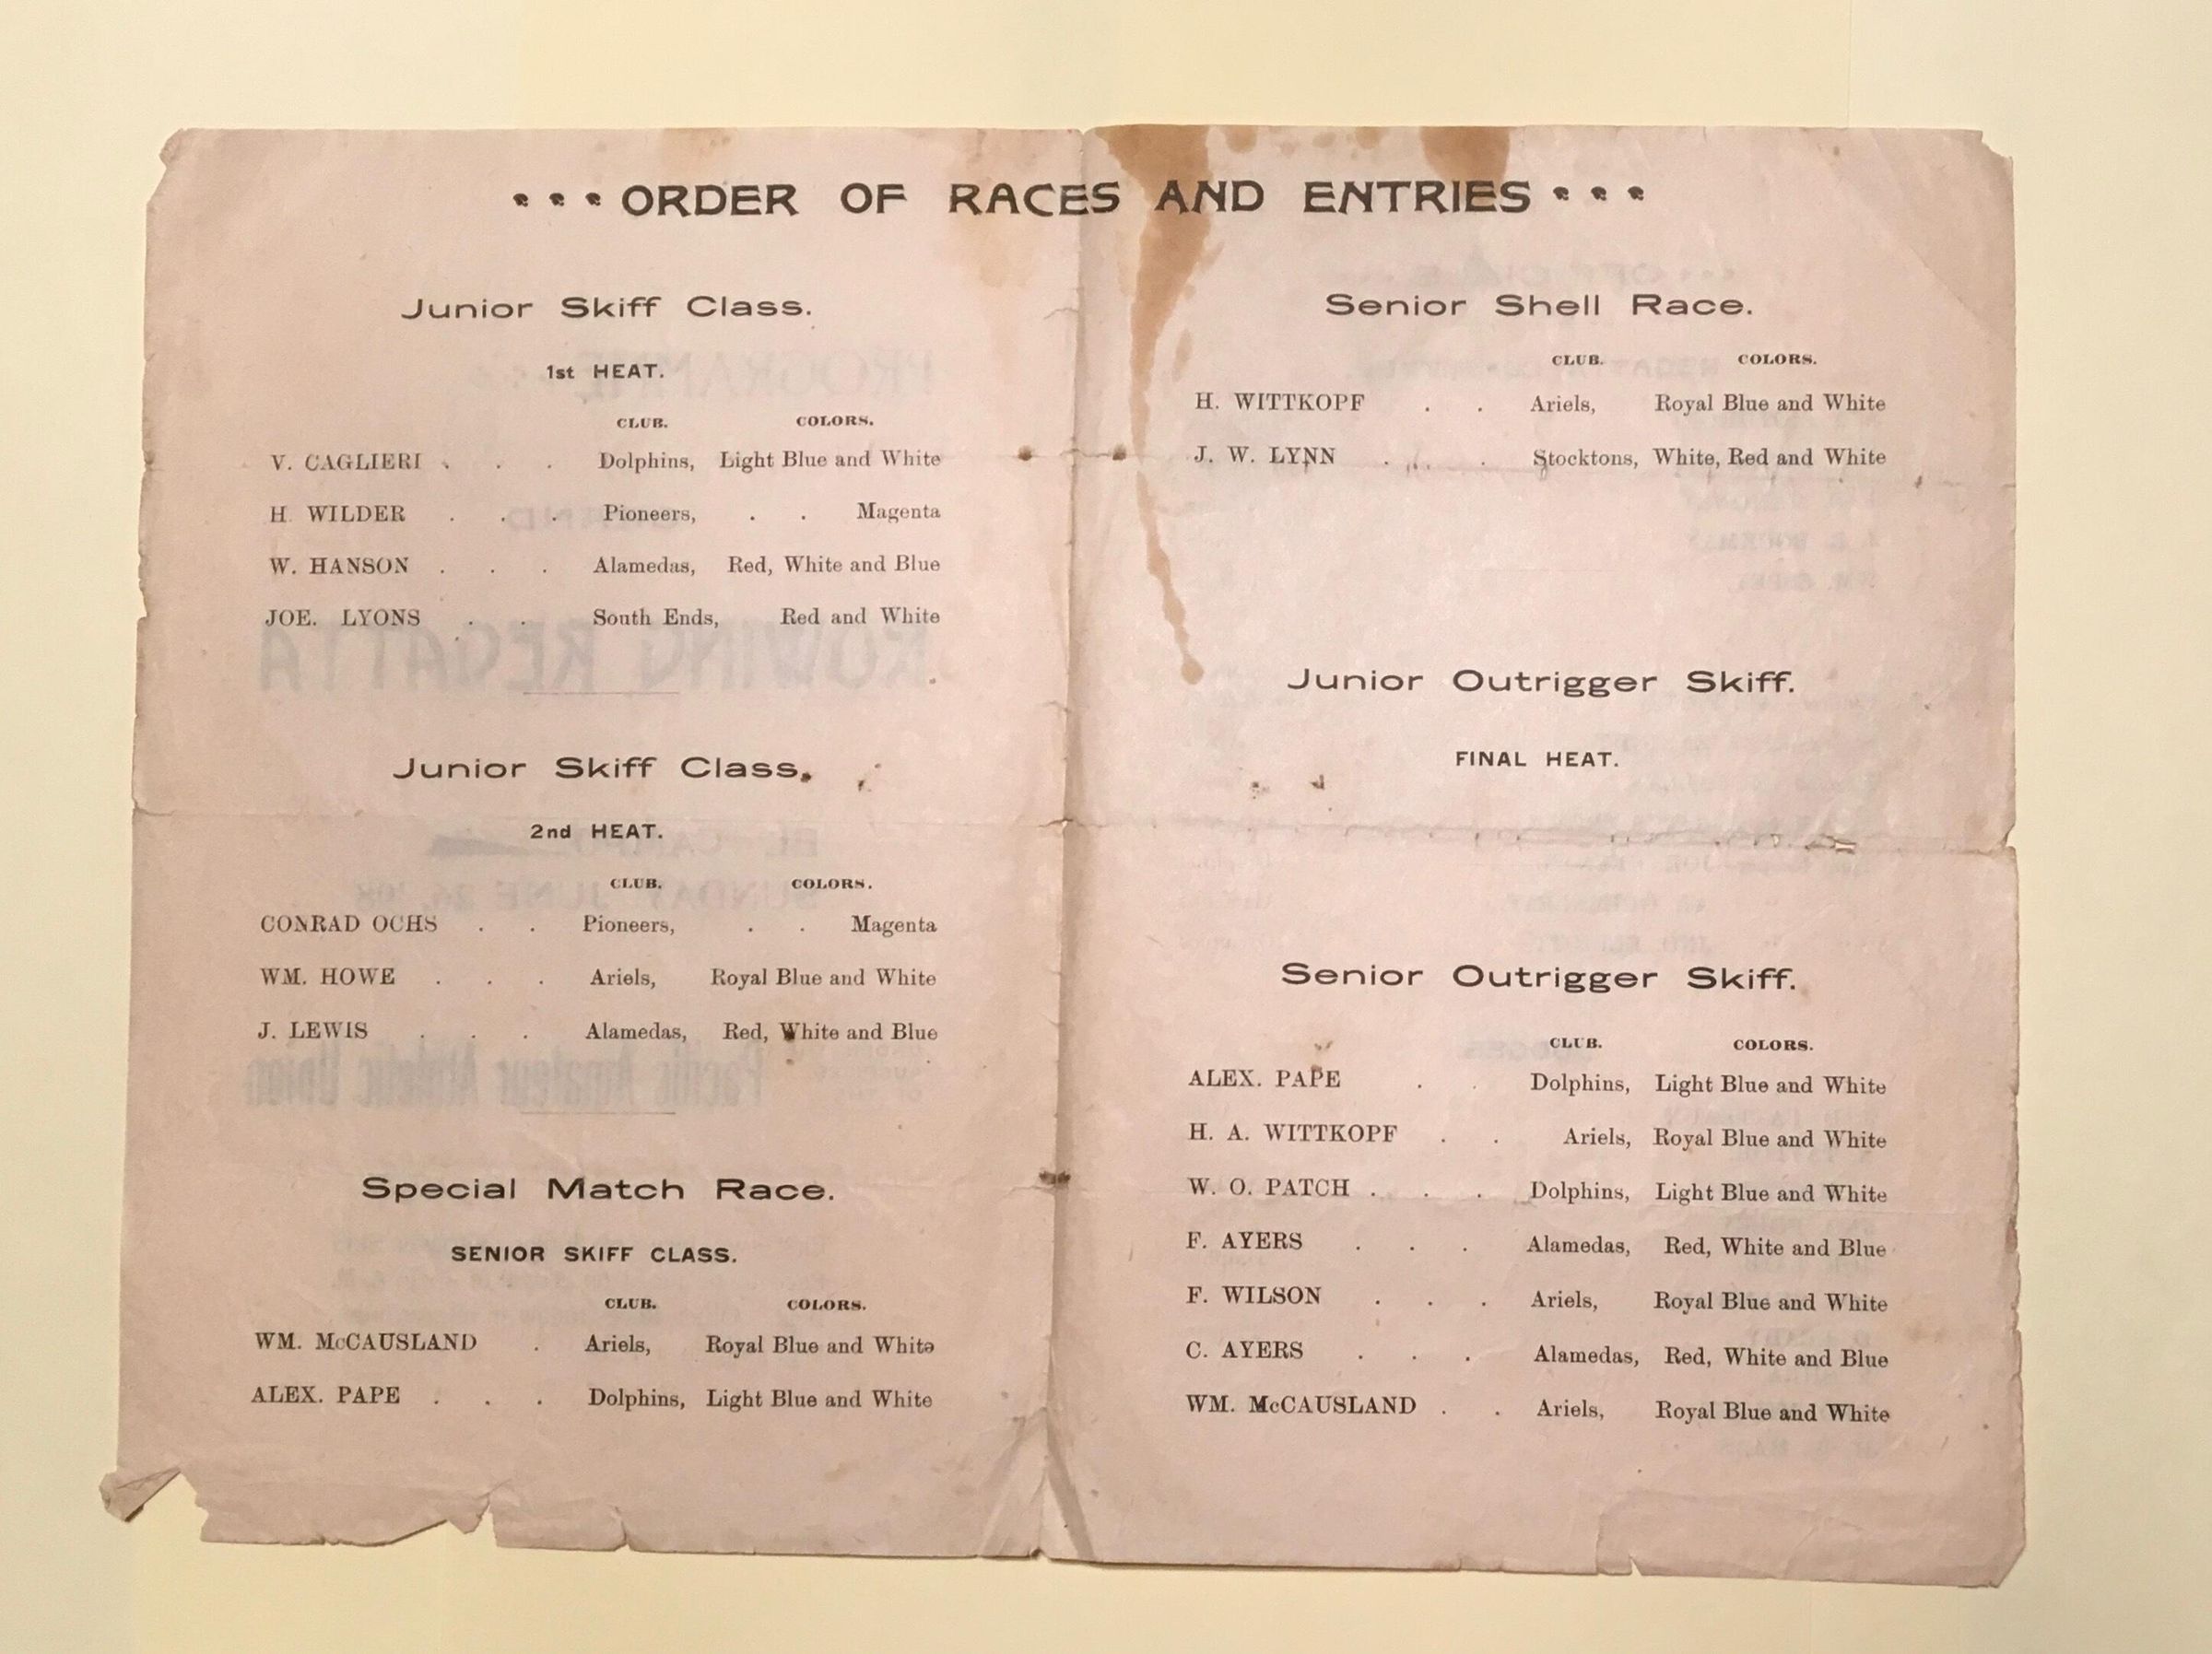 ORDER OF RACES AND ENTRIES
Junior Skiff Class.
1st HEAT.
CLUB. COLORS.
V. CAGLIERI . . . Dolphins, Light Blue and White
H. WILDER . . . Pioneers, . . Magenta
W. HANSON . . . Alamedas, Red, White and Blue
JOE. LYONS . . South Ends, Red and White
Junior Skiff Class.
2nd HEAT.
CLUB. COLORS.
CONRAD OCHS . . Pioneers, . . Magenta
WM. HOWE . . . Ariels, Royal Blue and White
J. LEWIS . . . Alamedas, Red, White and Blue
Special Match Race.
SENIOR SKIFF CLASS.
CLUB. COLORS.
WM. McCAUSLAND . Ariels, Royal Blue and White
ALEX. PAPE . . . Dolphins, Light Blue and White
Senior Shell Race.
CLUB. COLORS.
H. WITTKOPF . . Ariels, Royal Blue and White
J. W. LYNN . . . Stocktons, White, Red and White
Junior Outrigger Skiff.
FINAL HEAT.
Senior Outrigger Skiff.
CLUB. COLORS.
ALEX. PAPE . . Dolphins, Light Blue and White
H. A. WITTKOPF . . Ariels, Royal Blue and White
W. O. PATCH . . . Dolphins, Light Blue and White
F. AYERS . . . Alamedas, Red, White and Blue
F. WILSON . . . Ariels, Royal Blue and White
C. AYERS . . . Alamedas, Red, White and Blue
WM. McCAUSLAND . . Ariels, Royal Blue and White